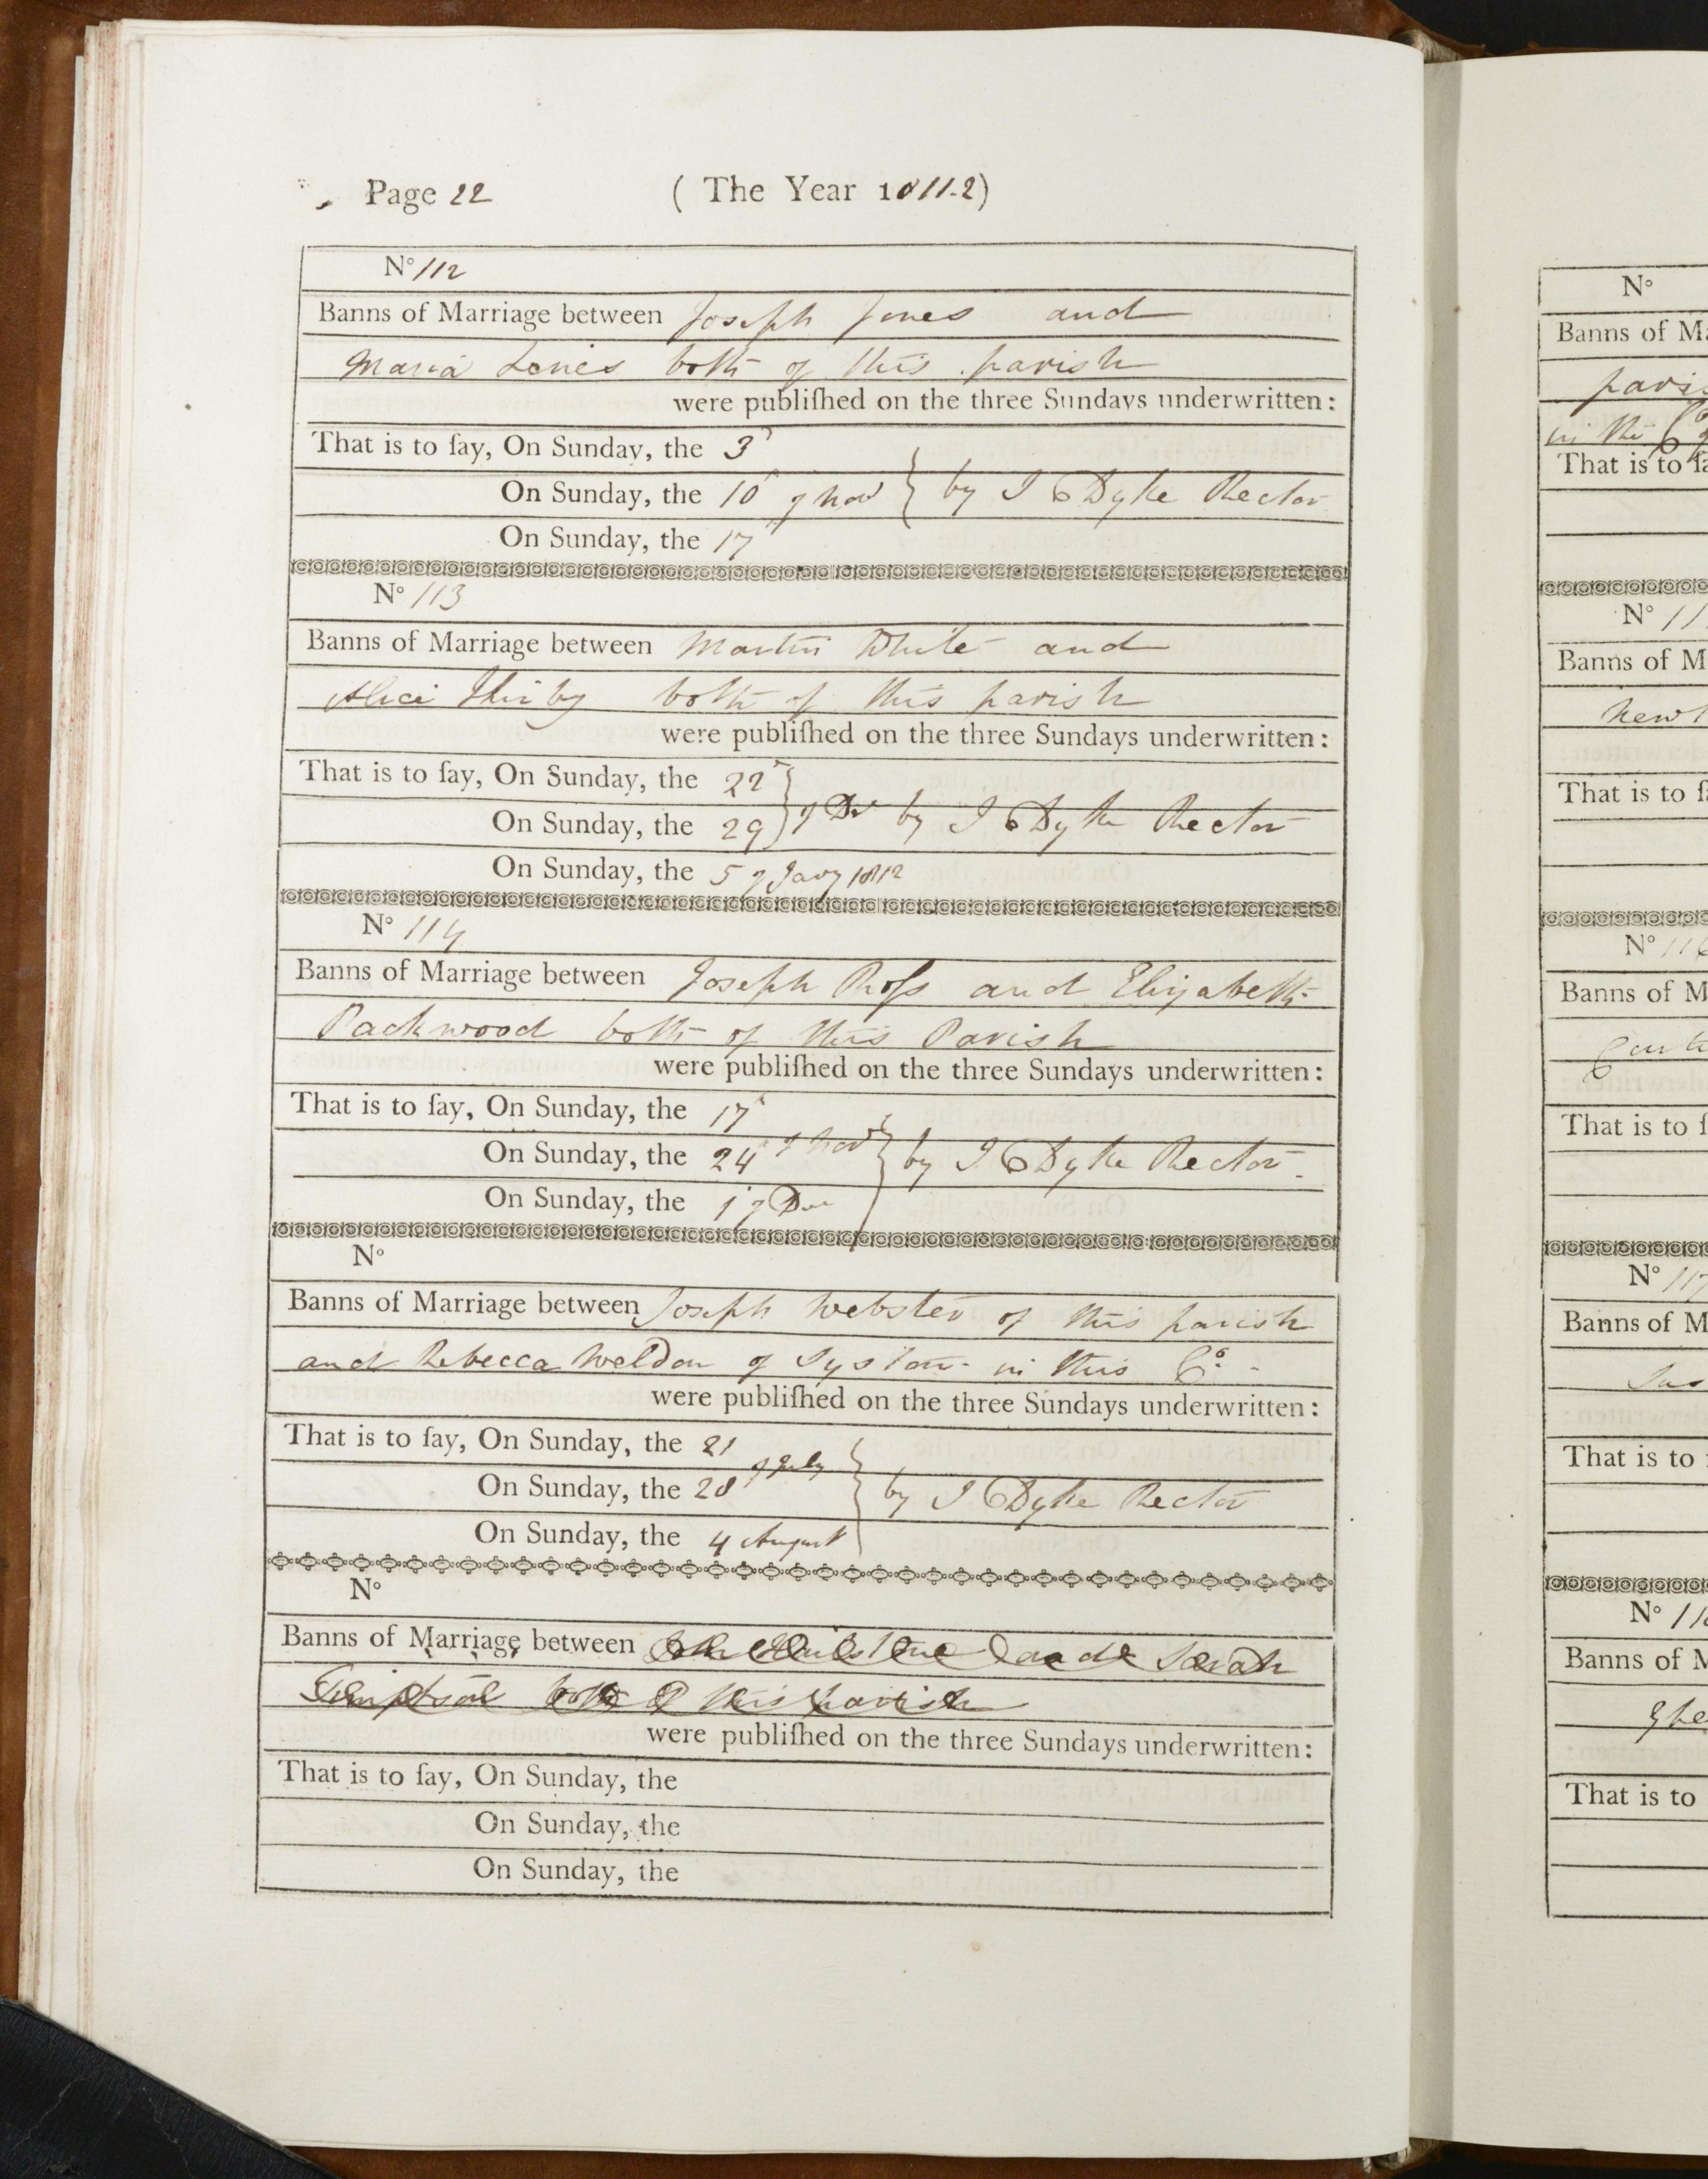 Page 22 ( The Year 1811-2)
No 112
Banns of Marriage between Joseph Jones and
Maria Lenes both of this parish
were publiſhed on the three Sundays underwritten:
That is to ſay, On Sunday, the 3
On Sunday, the 10 of Nov } by J C Dyke Rector
On Sunday, the 17
No 113
Banns of Marriage between Martin White and
Alice Thirby both of this parish
were publiſhed on the three Sundays underwritten:
That is to ſay, On Sunday, the 22
On Sunday, the 29 } of Dr by J C Dyke Rector
On Sunday, the 5 of Jany 1812
No 114
Banns of Marriage between Joseph Roſs and Elizabeth
Packwood both of this Parish
were publiſhed on the three Sundays underwritten:
That is to ſay, On Sunday, the 17
On Sunday, the 24 of Nov } by J C Dyke Rector
On Sunday, the 1 of Dec
No
Banns of Marriage between Joseph Webster of this parish
and Rebecca Weldon of Syston in this Co
were publiſhed on the three Sundays underwritten:
That is to ſay, On Sunday, the 21
On Sunday, the 28 of July } by J C Dyke Rector
On Sunday, the 4 August
No
Banns of Marriage between and Sarah
both of this parish
were publiſhed on the three Sundays underwritten:
That is to ſay, On Sunday, the
On Sunday, the
On Sunday, the
No
Banns of Ma
paris
in the Co
That is to ſa
No 11
Banns of M
New
That is to ſ
No 116
Banns of M
That is to ſ
No 117
Banns of M
That is to
No 11
Banns of M
That is to